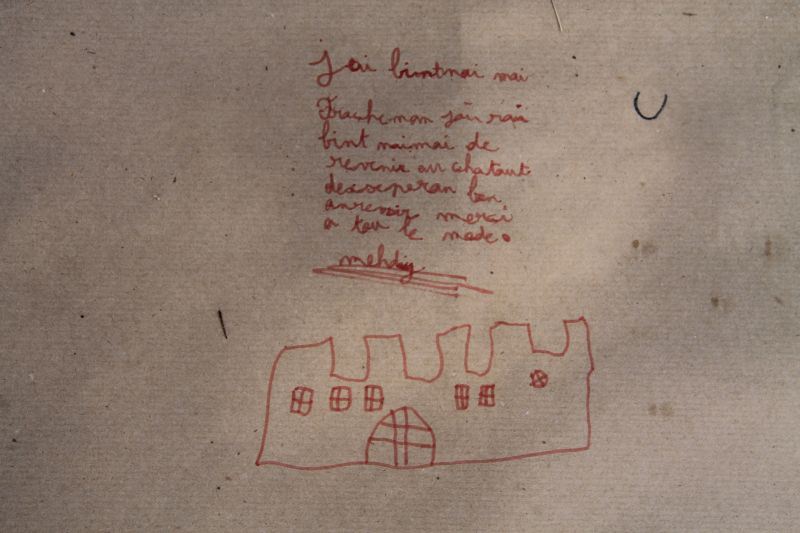 J'ai bintmai mai
Frachemon j'ai rai
bint maimai de
revenir au chataut
desoperan bon
aurevoir merci
a tou le mode.
mehdiy